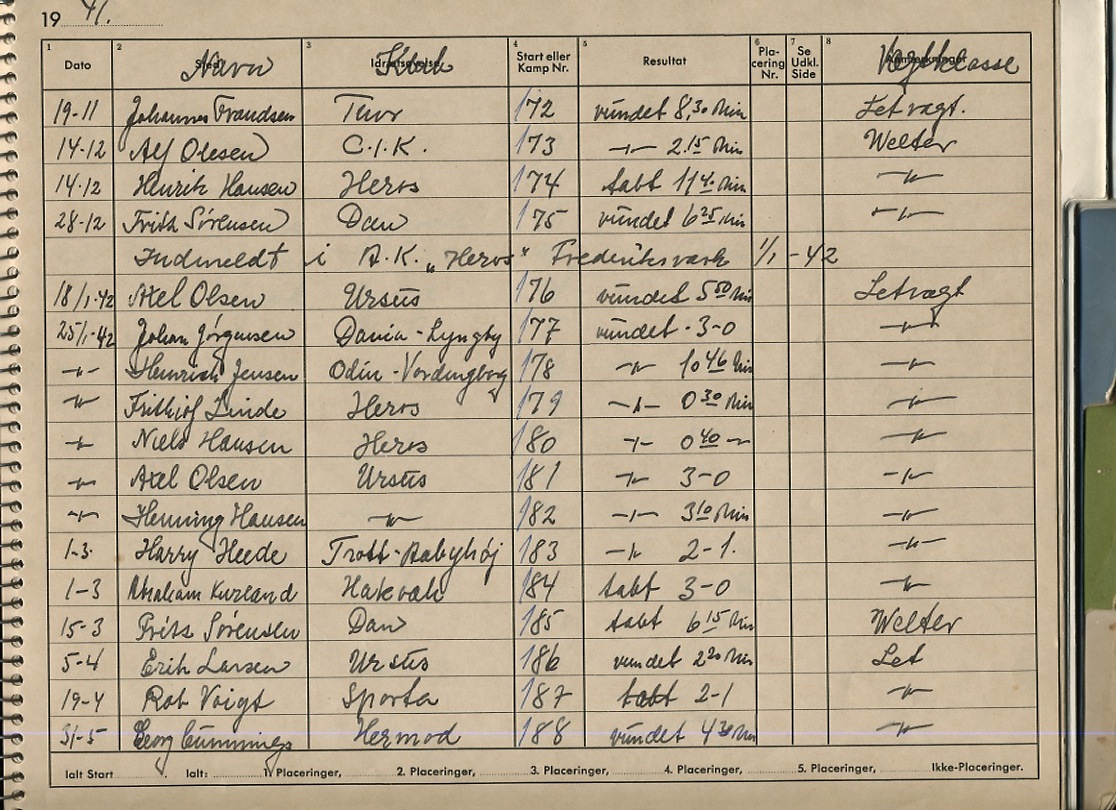 19 41.
1 2 3 4 5 6 7 8
Dato Navn Klub Start eller Kamp Nr. Resultat Pla- cering Nr. Se Udkl. Side Vægtklasse
19-11 Johannes Frandsen Thor 172 vundet 8,30 Min Letvægt.
14-12 Alf Olesen C.I.K. 173 -"- 2.15 Min Welter
14-12 Henrik Hansen Heros 174 tabt 11 40 Min -"-
28-12 Frits Sørensen Dan 175 vundet 6 25 Min -"-
Indmeldt i A.K. "Heros" Frederiksværk 1/1 - 42
18/1-42 Axel Olsen Ursus 176 vundet 5 50 Min Letvægt
25/1-42 Johan Jørgensen Dania - Lyngby 177 vundet - 3-0 -"-
-"- Heinrich Jensen Odin - Vordingborg 178 -"- 10 46 Min -"-
-"- Frithjof Linde Heros 179 -"- 0 30 Min -"-
-"- Niels Hansen Heros 180 -"- 0 40 - -"-
-"- Axel Olsen Ursus 181 -"- 3-0 -"-
-"- Henning Hansen -"- 182 -"- 3 10 Min -"-
1-3. Harry Heede Trott-Aabyhøj 183 -"- 2-1. -"-
1-3 Abraham Kurland Hakoah 184 tabt 3-0 -"-
15-3 Frits Sørensen Dan 185 tabt 6 15 Min Welter
5-4 Erik Larsen Ursus 186 vundet 2 20 Min Let
19-4 Rob Voigt Sparta 187 tabt 2-1 -"-
31-5 Georg Cummings Hermod 188 vundet 4 30 Min -"-
Ialt Start Ialt: 1. Placeringer, 2. Placeringer, 3. Placeringer, 4. Placeringer, 5. Placeringer, Ikke-Placeringer.